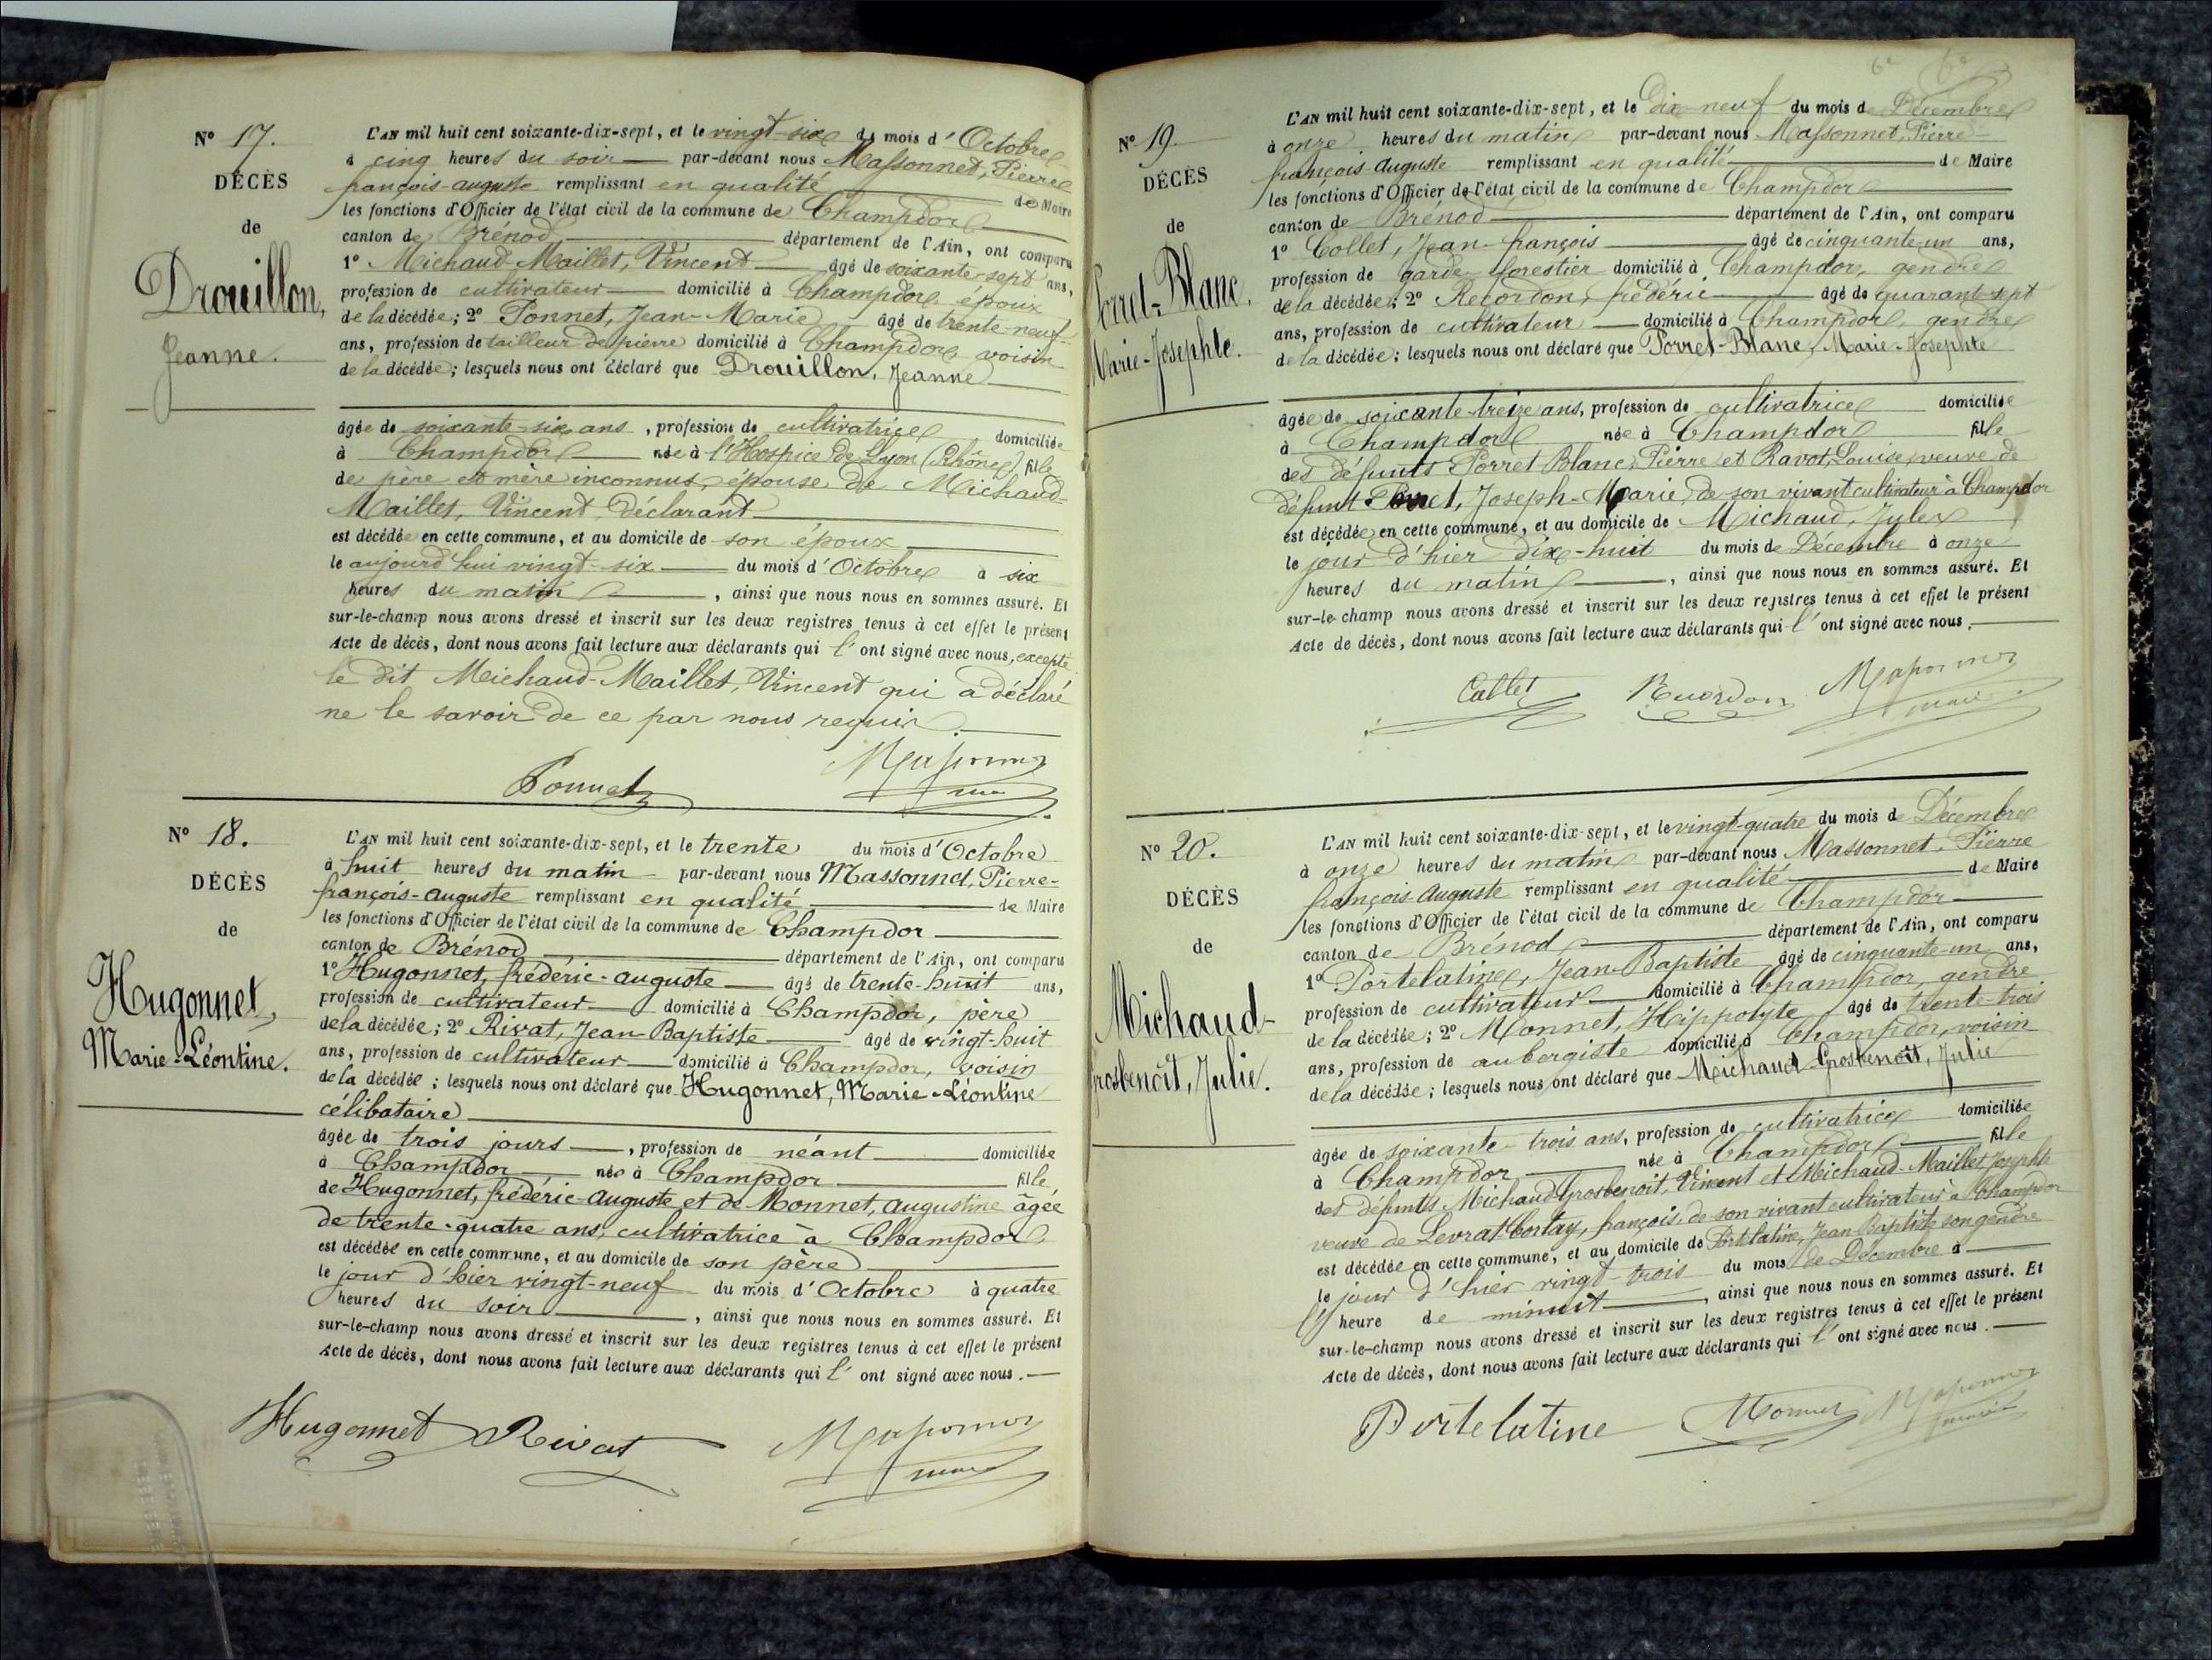 Nº 17.
DÉCÈS
de
Drouillon,
Jeanne.
L'AN mil huit cent soixante-dix-sept, et le vingt-six du mois d'Octobre
à cinq heures du soir par-devant nous Massonnet, Pierre
françois-auguste remplissant en qualité de Maire
les fonctions d'Officier de l'état civil de la commune de Champdor
canton de Brénod département de l'Ain, ont comparu
1º Michaud-Maillet, Vincent âgé de soixante-sept ans,
profession de cultivateur domicilié à Champdor époux
de la décédée; 2º Ponnet, Jean-Marie âgé de trente-neuf
ans, profession de tailleur de pierre domicilié à Champdor voisin
de la décédée; lesquels nous ont déclaré que Drouillon, Jeanne
âgée de soixante-six ans, profession de cultivatrice domiciliée
à Champdor née à l'Hospice de Lyon (Rhône) fille
de père et mère inconnus, épouse de Michaud-
Maillet, Vincent, Déclarant
est décédée en cette commune, et au domicile de son époux
le aujourd'hui vingt-six du mois d'Octobre à six
heures du matin, ainsi que nous nous en sommes assuré. Et
sur-le-champ nous avons dressé et inscrit sur les deux registres tenus à cet effet le présent
Acte de décès, dont nous avons fait lecture aux déclarants qui l'ont signé avec nous, excepté
le dit Michaud-Maillet, Vincent qui a déclaré
ne le savoir de ce par nous requis.
Ponnet Massonnet
Nº 18.
DÉCÈS
de
Hugonnet,
Marie-Léontine.
L'AN mil huit cent soixante-dix-sept, et le trente du mois d'Octobre
à huit heures du matin par-devant nous Massonnet, Pierre-
françois-auguste remplissant en qualité de Maire
les fonctions d'Officier de l'état civil de la commune de Champdor
canton de Brénod département de l'Ain, ont comparu
1º Hugonnet, frédéric-auguste âgé de trente-huit ans,
profession de cultivateur domicilié à Champdor, père
de la décédée; 2º Rivat, Jean-Baptiste âgé de vingt-huit
ans, profession de cultivateur domicilié à Champdor, voisin
de la décédée; lesquels nous ont déclaré que Hugonnet, Marie-Léontine
célibataire
âgée de trois jours, profession de néant domiciliée
à Champdor née à Champdor fille
de Hugonnet, frédéric-auguste et de Monnet, augustine âgée
de trente-quatre ans, cultivatrice à Champdor
est décédée en cette commune, et au domicile de son père
le jour d'hier vingt-neuf du mois d'Octobre à quatre
heures du soir, ainsi que nous nous en sommes assuré. Et
sur-le-champ nous avons dressé et inscrit sur les deux registres tenus à cet effet le présent
Acte de décès, dont nous avons fait lecture aux déclarants qui l'ont signé avec nous.
Hugonnet Rivat Massonnet maire
Nº 19
DÉCÈS
de
Porret-Blanc,
Marie-Josephte.
L'AN mil huit cent soixante-dix-sept, et le Dix-neuf du mois de Décembre
à onze heures du matin par-devant nous Massonnet, Pierre-
françois-auguste remplissant en qualité de Maire
les fonctions d'Officier de l'état civil de la commune de Champdor
canton de Brénod département de l'Ain, ont comparu
1º Collet, Jean-françois âgé de cinquante-un ans,
profession de garde-forestier domicilié à Champdor, gendre
de la décédée; 2º Recordon, frédéric âgé de quarant-sept
ans, profession de cultivateur domicilié à Champdor, gendre
de la décédée; lesquels nous ont déclaré que Porret-Blanc, Marie-Josephte
âgée de soixante-treize ans, profession de cultivatrice domiciliée
à Champdor née à Champdor fille
des défunts Porret Blanc, Pierre et Ravot, Louise, veuve de
défunt Porret, Joseph-Marie, de son vivant cultivateur à Champdor
est décédée en cette commune, et au domicile de Michaud, Jules
le jour d'hier dix-huit du mois de Décembre à onze
heures du matin, ainsi que nous nous en sommes assuré. Et
sur-le-champ nous avons dressé et inscrit sur les deux registres tenus à cet effet le présent
Acte de décès, dont nous avons fait lecture aux déclarants qui l'ont signé avec nous.
Collet Recordon Massonnet maire
Nº 20.
DÉCÈS
de
Michaud-
Grosbenoît, Julie.
L'AN mil huit cent soixante-dix-sept, et le vingt-quatre du mois de Décembre
à onze heures du matin par-devant nous Massonnet, Pierre
françois auguste remplissant en qualité de Maire
les fonctions d'Officier de l'état civil de la commune de Champdor
canton de Brénod département de l'Ain, ont comparu
1º Portelatine, Jean-Baptiste âgé de cinquante-un ans,
profession de cultivateur domicilié à Champdor, gendre
de la décédée; 2º Monnet, Hippolyte âgé de trente-trois
ans, profession de aubergiste domicilié à Champdor, voisin
de la décédée; lesquels nous ont déclaré que Michaud-Grosbenoît, Julie
âgée de soixante-trois ans, profession de cultivatrice domiciliée
à Champdor née à Champdor fille
des défunts Michaud Grosbenoît, Vincent et Michaud-Maillet, Josephte
veuve de Levrat Cortay, françois, de son vivant cultivateur à Champdor
est décédée en cette commune, et au domicile de Portelatine, Jean Baptiste son gendre
le jour d'hier vingt-trois du mois de Décembre à
heure de minuit, ainsi que nous nous en sommes assuré. Et
sur-le-champ nous avons dressé et inscrit sur les deux registres tenus à cet effet le présent
Acte de décès, dont nous avons fait lecture aux déclarants qui l'ont signé avec nous.
Portelatine Monnet Massonnet maire